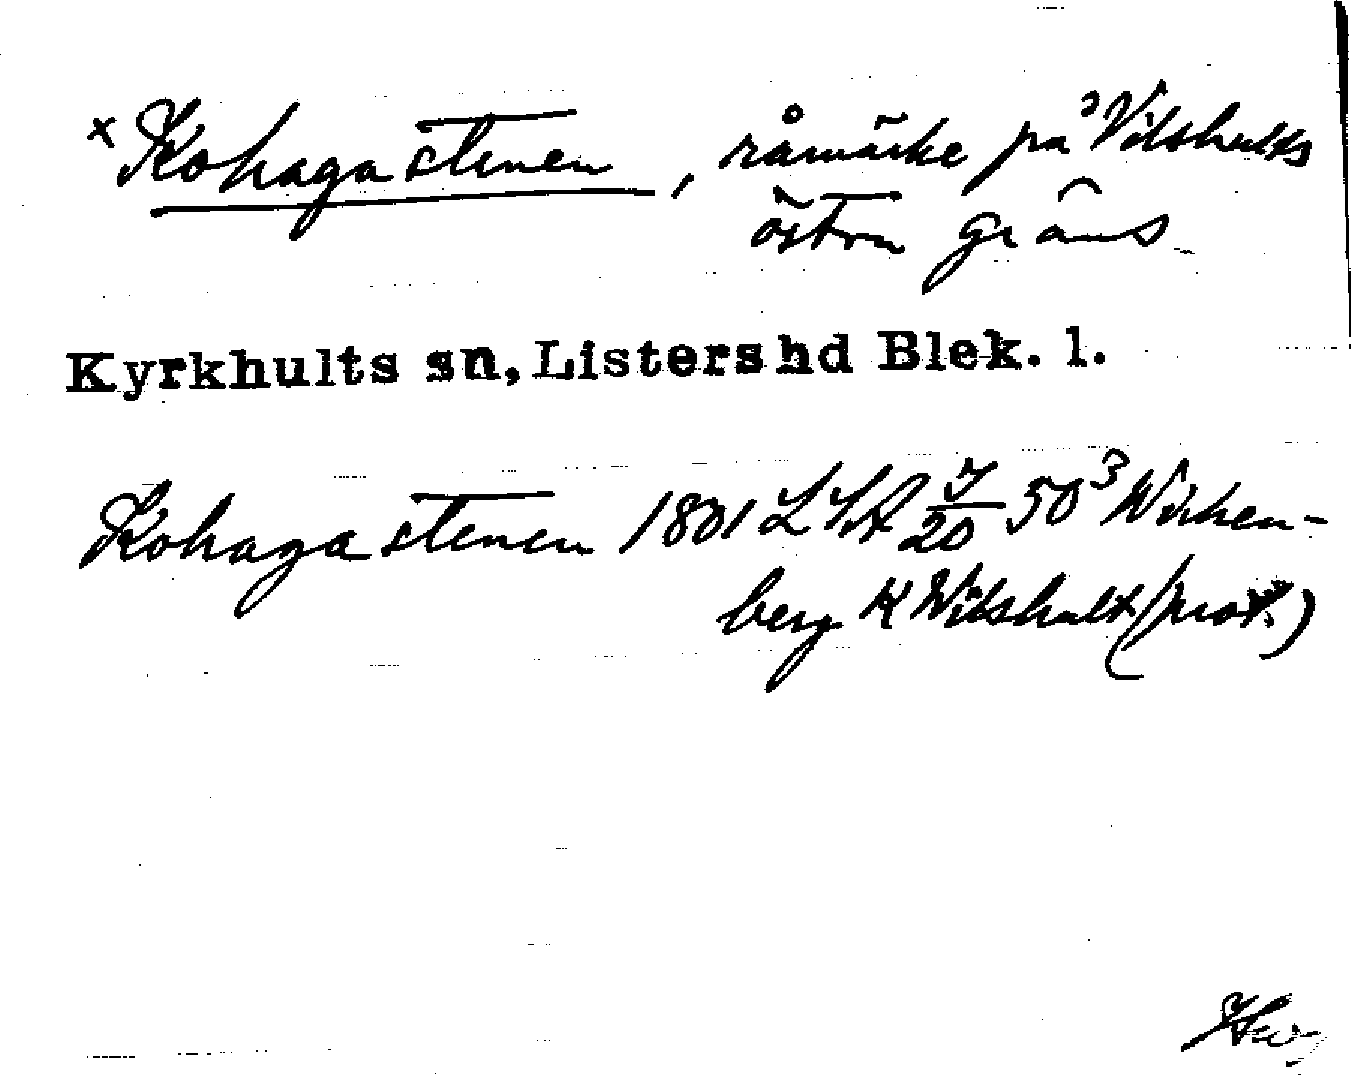 x Kohagastenen, råmärke på Vilshults
östra gräns
Kyrkhults sn, Listers hd Blek. l.
Kohagastenen 1801 LSA 20 50³ Wirken-
berg K Wilshult (prot.)